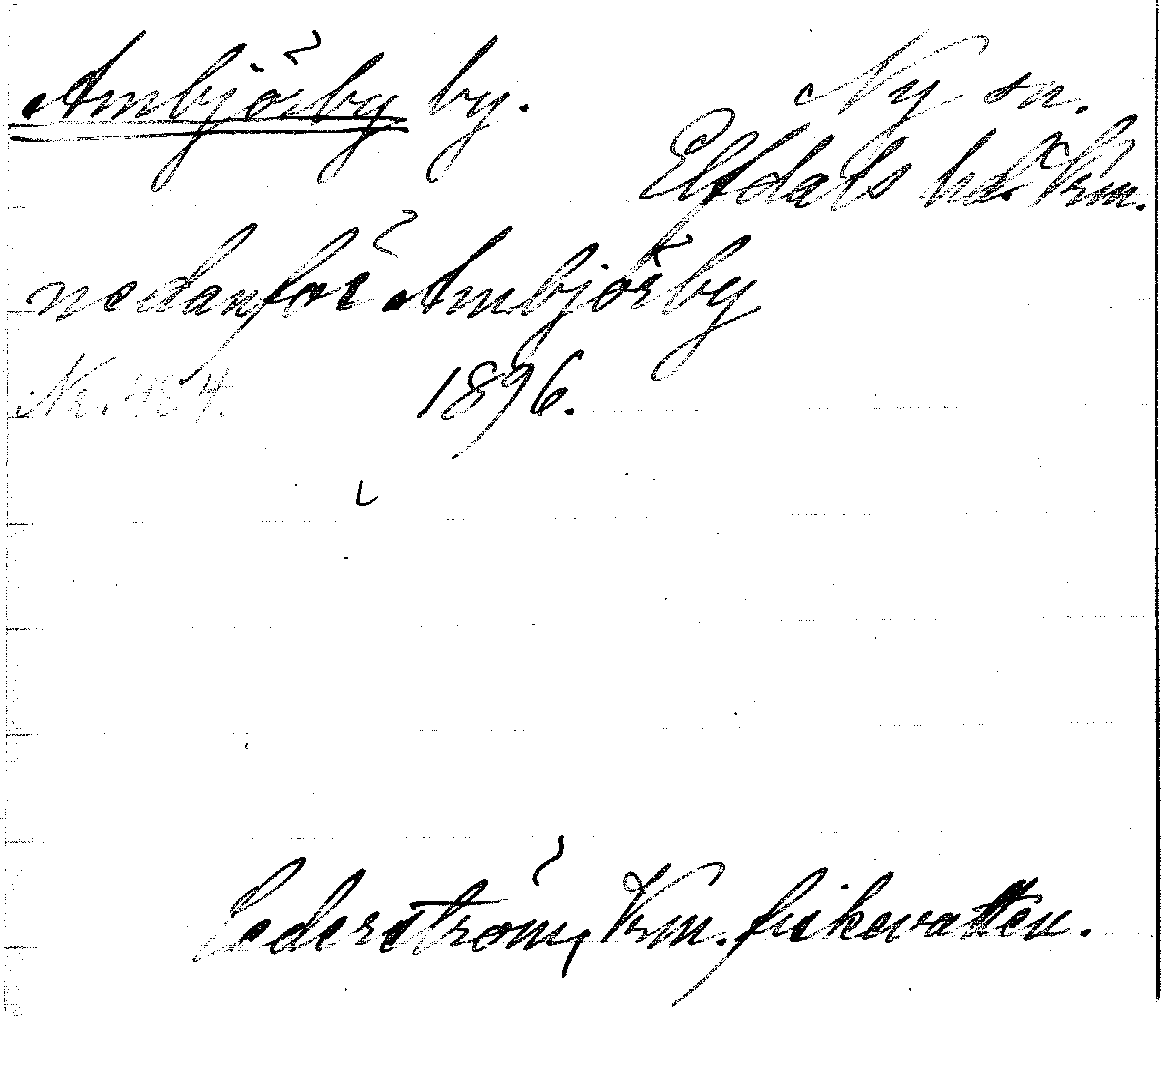 Ambjörby by.
Ny sn.
Elfdals hd. Vrm.
nedanför Ambjörby
Nr. 484. 1896.
Cederström, Vrm. fiskevatten.